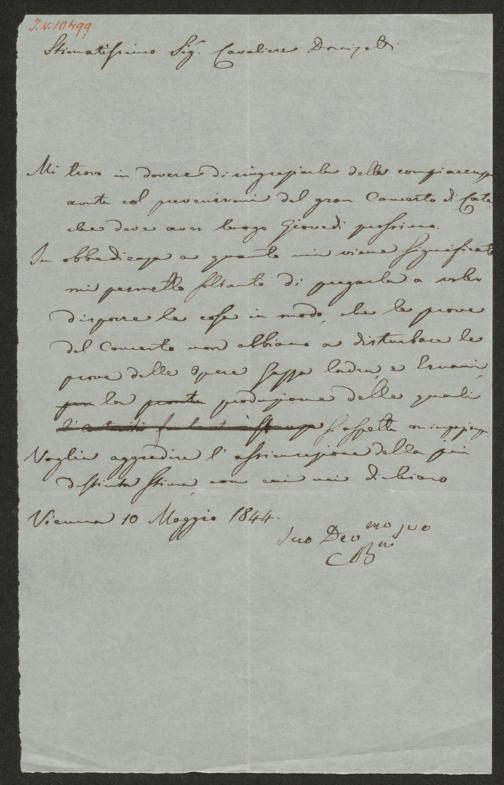 I.N. 10499
Stimatissimo Sigr. Cavaliere Donizetti
Mi trovo in dovere di ringraziarla della compiacenza
avuta col prevenirmi del gran Concerto di Corte
che deve aver luogo Giovedì prossimo.
In obbedienza a quanto mi viene significato
mi permetto soltanto di pregarla a voler
disporre le cose in modo, che le prove
del Concerto non abbiano a disturbare le
prove delle Opere Gazza ladra, e Ernani,
per la pronta produzione delle quali
s'aspetta
Voglia aggradire l'assicurazione della più
distinta stima, con cui mi dichiaro
Vienna 10 Maggio 1844.
Suo Devmo suo